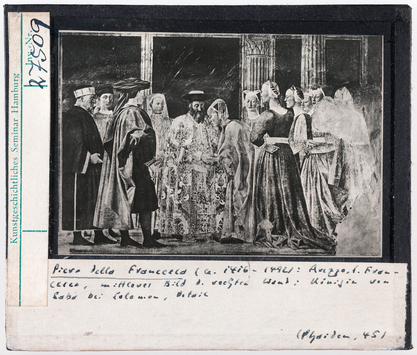 Kunstgeschichtliches Seminar Hamburg
Inv.-Nr.
47509
Piero della Francesca (ca. 1416-1492): Arezzo, S. Fran-
cesco, mittleres Bild d. rechten Wand: Königin von
Saba bei Salomon, Detail
(Phaidon, 45)